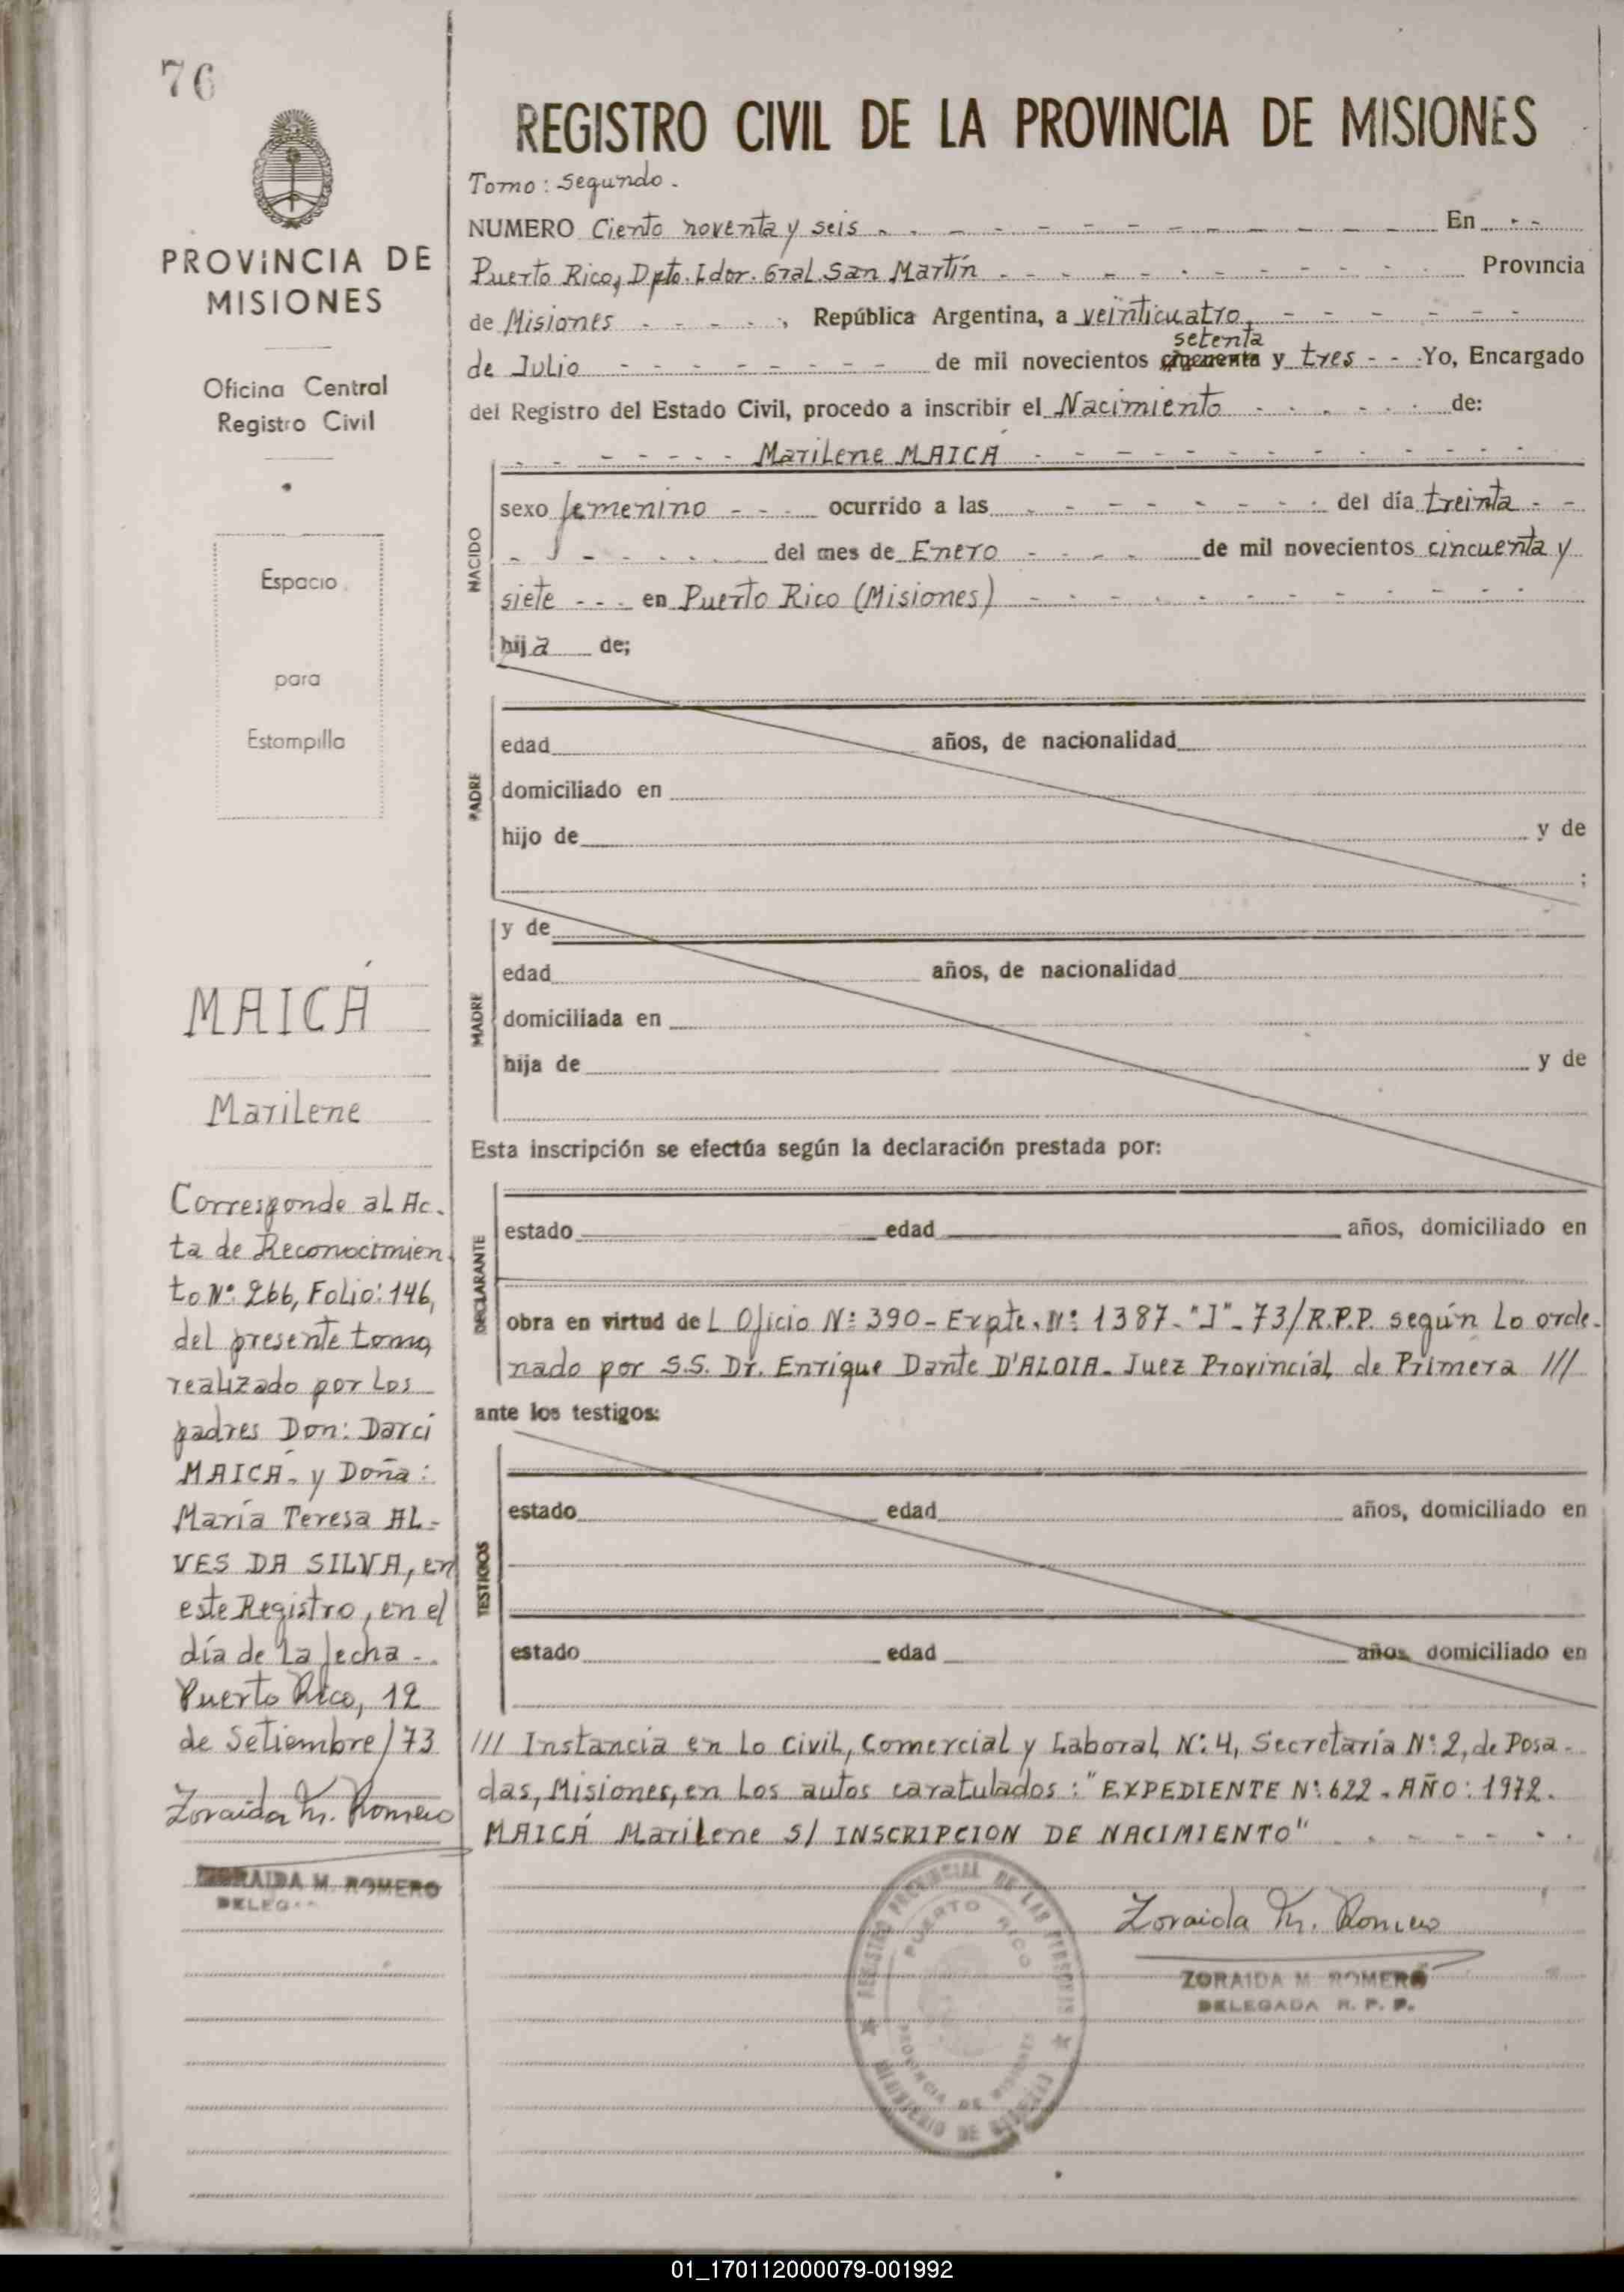 76
PROVINCIA DE
MISIONES
Oficina Central
Registro Civil
Espacio
para
Estampilla
MAICÁ
Marilene
Corresponde al Ac-
ta de Reconocimien
to Nº 266, Folio: 146,
del presente tomo,
realizado por los
padres Don: Darci
MAICÁ- y Doña:
María Teresa AL-
VES DA SILVA, en
este Registro, en el
día de la fecha -.
Puerto Rico, 12
de Setiembre/73
Zoraida M. Romero
ZORAIDA M. ROMERO
DELEG
REGISTRO CIVIL DE LA PROVINCIA DE MISIONES
Tomo: Segundo.
NUMERO Ciento noventa y seis En
Puerto Rico, Dpto. Ldor. Gral. San Martín Provincia
de Misiones , República Argentina, a veinticuatro
setenta
de Julio de mil novecientos cincuenta y tres Yo, Encargado
del Registro del Estado Civil, procedo a inscribir el Nacimiento de:
Marilene MAICÁ
NACIDO
sexo femenino ocurrido a las del día treinta
del mes de Enero de mil novecientos cincuenta y
siete en Puerto Rico (Misiones)
hija de;
PADRE
edad años, de nacionalidad
domiciliado en
hijo de y de
;
MADRE
y de
edad años, de nacionalidad
domiciliada en
hija de y de
Esta inscripción se efectúa según la declaración prestada por:
DECLARANTE
estado edad años, domiciliado en
obra en virtud de L Oficio Nº 390- Expte. Nº 1387-"J"-73/R.P.P. según lo orde-
nado por S.S. Dr. Enrique Dante D'ALOIA- Juez Provincial de Primera ///
ante los testigos:
TESTIGOS
estado edad años, domiciliado en
estado edad años, domiciliado en
/// Instancia en lo Civil, Comercial y Laboral Nº 4, Secretaría Nº 2, de Posa-
das, Misiones, en los autos caratulados: "EXPEDIENTE Nº 622 - AÑO: 1972.
MAICÁ Marilene S/ INSCRIPCION DE NACIMIENTO"
REGISTRO PROVINCIAL DE LAS PERSONAS
PUERTO RICO
PROVINCIA DE MISIONES
MINISTERIO DE
Zoraida M. Romero
ZORAIDA M. ROMERO
DELEGADA R. P. P.
01_170112000079-001992